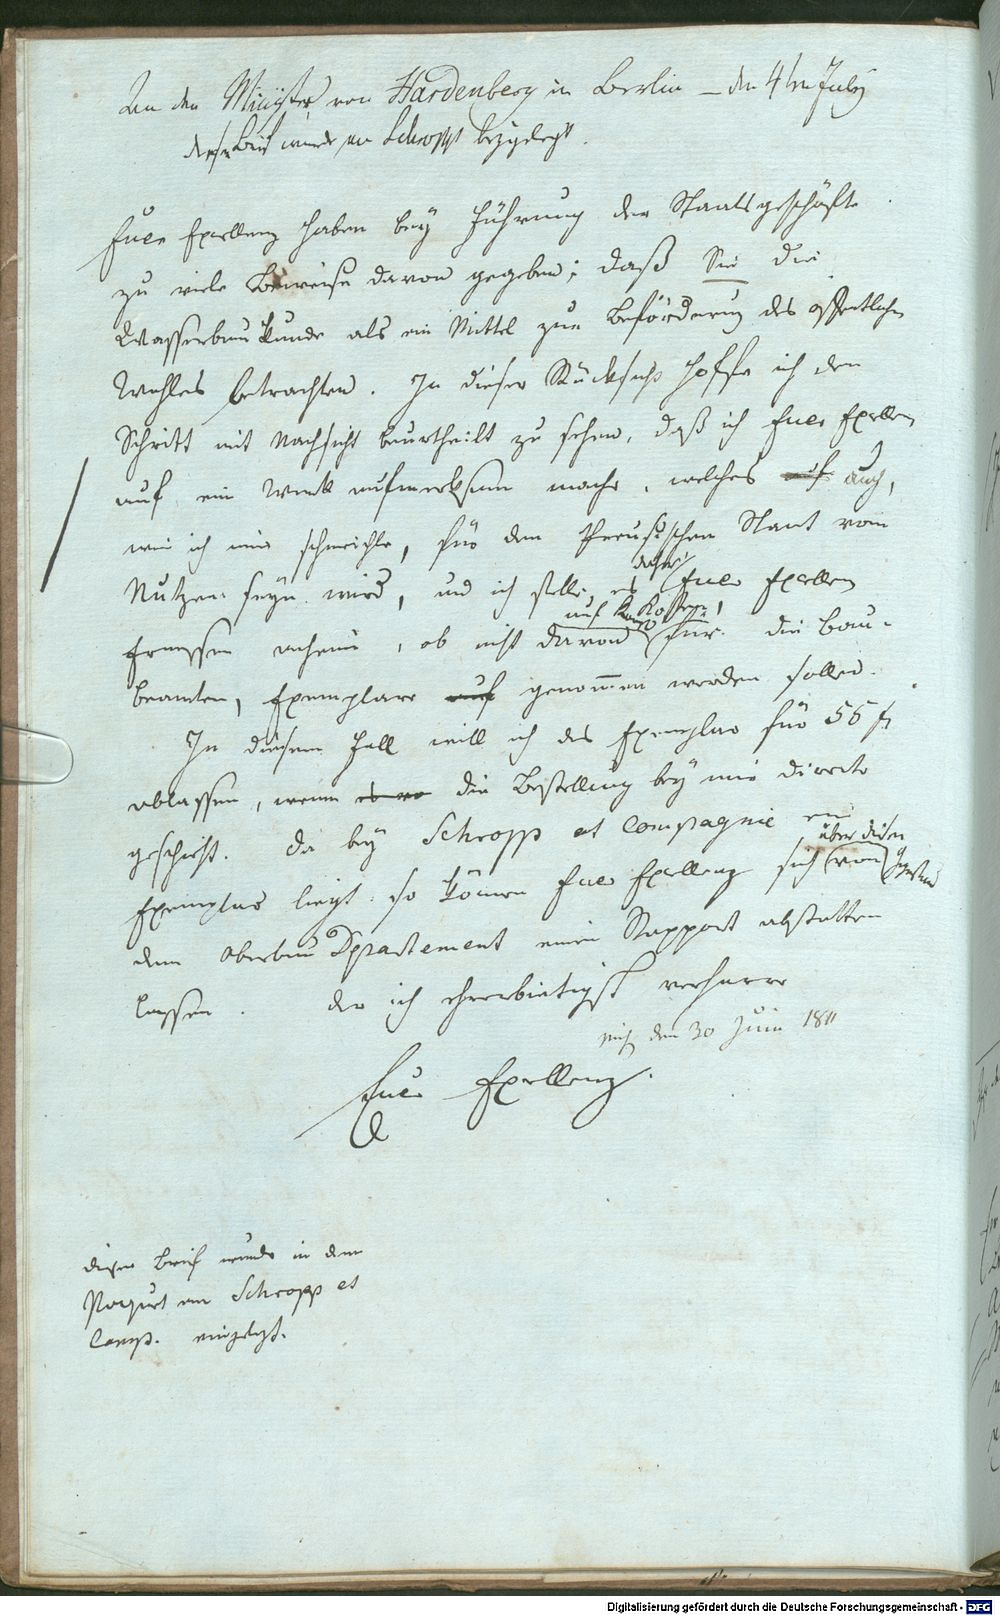 An den Minister von Hardenberg in Berlin – den 4ten July
dieser Brief wurde an Schropp beygelegt.
Euer Exellenz haben bey Führung der Staatsgeschäfte
zu viele Beweise davon gegeben, daß Sie die
Wasserbaukunde als ein Mittel zur Beförderung des öffentlichen
Wohles betrachten. In dieser Rücksicht hoffe ich den
Schritt mit Nachsicht beurtheilt zu sehen, daß ich Euer Exellenz
auf ein Werk aufmerksam mache, welches auf auch,
wie ich mir schmeichle, für den Preussischen Staat von
Nutzen seyn wird, und ich stelle, es daher Euer Exellenz
Ermessen anheim, ob nicht davon auf Kosten, für die Bau-
beamten, Exemplare auf genommen werden sollen.
In diesem Fall will ich das Exemplar für 55 f
ablassen, wenn die Bestellung bey mir directe
geschieht. Da bey Schropp et Compagnie ein
Exemplar liegt. so können Euer Exellenz sich über diesen Gegenstand von
dem Oberbau Departement einen Rapport abstatten
lassen. der ich ehrerbietigst verharre
den 30 Juni 1811
Euer Exellenz.
dieser Brief wurde in dem
Paquet an Schropp et
Comp. eingelegt.
Digitalisierung gefördert durch die Deutsche Forschungsgemeinschaft - DFG